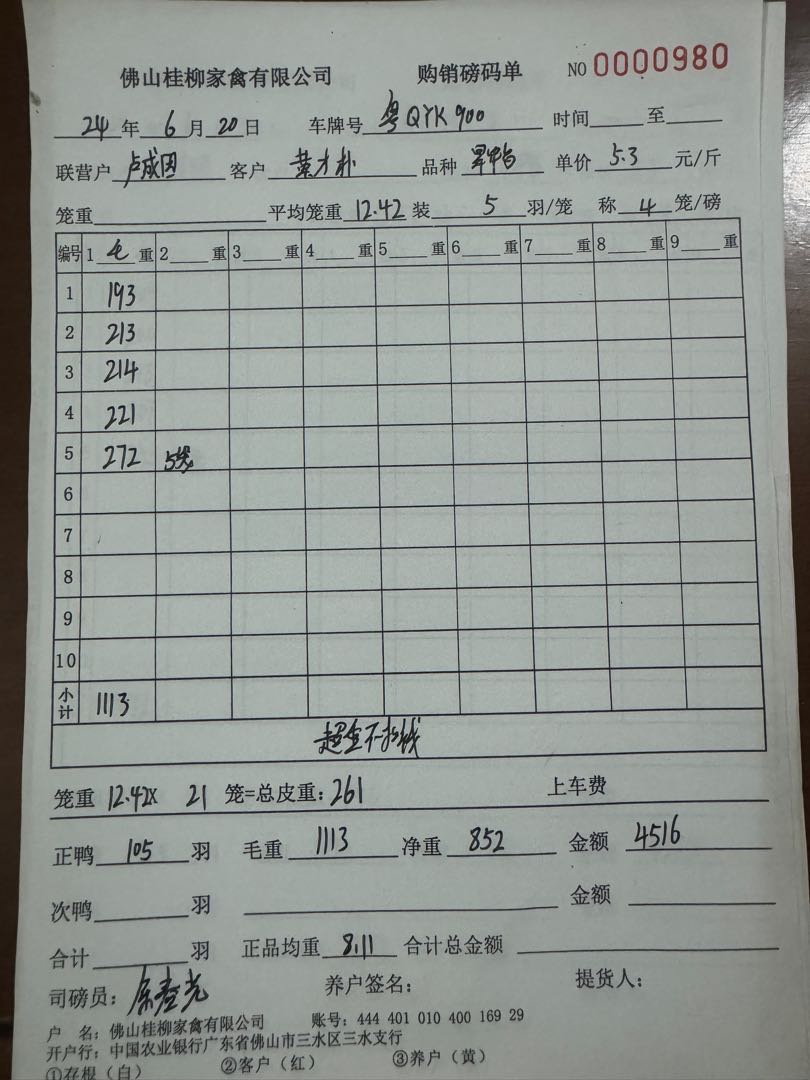 佛山桂柳家禽有限公司 购销磅码单 NO 0000980
24年6月20日 车牌号 粤QYK900 时间 至
联营户 卢成因 客户 叶才朴 品种 单价 5.3 元/斤
笼重 平均笼重 12.42 装 5 羽/笼 称 4 笼/磅
编号 1 毛 重 2 重 3 重 4 重 5 重 6 重 7 重 8 重 9 重
1 193
2 213
3 214
4 221
5 272 5笼
6
7
8
9
10
小计 1113
超重不扣钱
笼重 12.42X 21 笼=总皮重：261 上车费
正鸭 105 羽 毛重 1113 净重 852 金额 4516
次鸭 羽 金额
合计 羽 正品均重 8.11 合计总金额
司磅员： 养户签名： 提货人：
户 名：佛山桂柳家禽有限公司 账号：444 401 010 400 169 29
开户行：中国农业银行广东省佛山市三水区三水支行
①存根（白） ②客户（红） ③养户（黄）